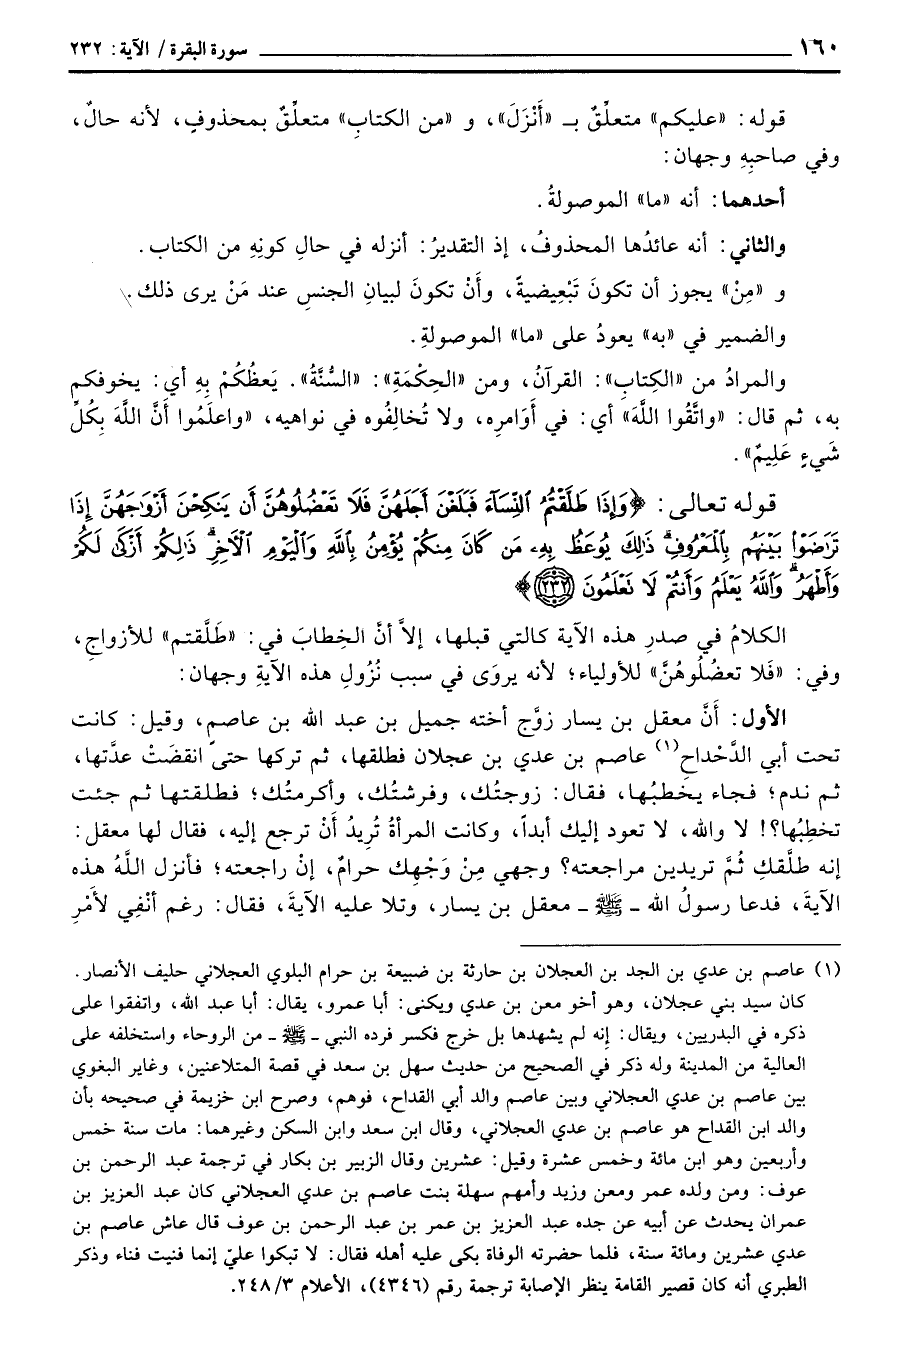 ١٦٠ ــــــــــــــــــــــــــــــــــــــــــــــــــــ سورة البقرة / الآية: ٢٣٢
قوله: «عليكم» متعلِّقٌ بـ «أَنْزَلَ»، و «من الكتابِ» متعلِّقٌ بمحذوفٍ، لأنه حالٌ،
وفي صاحبِهِ وجهان:
أحدهما: أنه «ما» الموصولةُ.
والثاني: أنه عائدُها المحذوفُ، إذ التقديرُ: أنزله في حالِ كونِهِ من الكتاب.
و «مِنْ» يجوز أن تكونَ تَبْعِيضيةً، وأَنْ تكونَ لبيانِ الجنسِ عند مَنْ يرى ذلك.
والضمير في «به» يعودُ على «ما» الموصولةِ.
والمرادُ من «الكِتابِ»: القرآنُ، ومن «الحِكْمَةِ»: «السُّنَّةُ». يَعظُكُمْ بِهِ أي: يخوفكم
به، ثم قال: «واتَّقُوا اللَّهَ» أي: في أَوَامرِه، ولا تُخالِفُوه في نواهيه، «واعلَمُوا أَنَّ اللَّهَ بِكُلِّ
شَيءٍ عَلِيمٌ».
قوله تعالى: ﴿وَإِذَا طَلَّقْتُمُ ٱلنِّسَآءَ فَبَلَغْنَ أَجَلَهُنَّ فَلَا تَعْضُلُوهُنَّ أَن يَنكِحْنَ أَزْوَٰجَهُنَّ إِذَا
تَرَٰضَوْا۟ بَيْنَهُم بِٱلْمَعْرُوفِۗ ذَٰلِكَ يُوعَظُ بِهِۦ مَن كَانَ مِنكُمْ يُؤْمِنُ بِٱللَّهِ وَٱلْيَوْمِ ٱلْـَٔاخِرِۗ ذَٰلِكُمْ أَزْكَىٰ لَكُمْ
وَأَطْهَرُۗ وَٱللَّهُ يَعْلَمُ وَأَنتُمْ لَا تَعْلَمُونَ ٢٣٢﴾
الكلامُ في صدرِ هذه الآية كالتي قبلها، إلاَّ أنَّ الخِطابَ في: «طَلَّقتم» للأزواجِ،
وفي: «فَلا تعضُلُوهُنَّ» للأولياء؛ لأنه يروَى في سبب نُزُولِ هذه الآيةِ وجهان:
الأول: أَنَّ معقل بن يسار زوَّج أخته جميل بن عبد الله بن عاصم، وقيل: كانت
تحت أبي الدَّحْداح(١) عاصم بن عدي بن عجلان فطلقها، ثم تركها حتىّ انقضَتْ عدَّتها،
ثم ندم؛ فجاء يخطبُها، فقال: زوجتُك، وفرشتُك، وأكرمتُك؛ فطلقتها ثم جئت
تخطِبُها؟! لا والله، لا تعود إليك أبداً، وكانت المرأةُ تُرِيدُ أَنْ ترجع إليه، فقال لها معقل:
إنه طلَّقكِ ثُمَّ تريدين مراجعته؟ وجهي مِنْ وَجْهِك حرامٌ، إنْ راجعته؛ فأنزل اللَّهُ هذه
الآيةَ، فدعا رسولُ الله ـ ﷺ ـ معقل بن يسار، وتلا عليه الآيةَ، فقال: رغم أنْفِي لأَمْرِ
(١) عاصم بن عدي بن الجد بن العجلان بن حارثة بن ضبيعة بن حرام البلوي العجلاني حليف الأنصار.
كان سيد بني عجلان، وهو أخو معن بن عدي ويكنى: أبا عمرو، يقال: أبا عبد الله، واتفقوا على
ذكره في البدريين، ويقال: إنه لم يشهدها بل خرج فكسر فرده النبي ـ ﷺ ـ من الروحاء واستخلفه على
العالية من المدينة وله ذكر في الصحيح من حديث سهل بن سعد في قصة المتلاعنين، وغاير البغوي
بين عاصم بن عدي العجلاني وبين عاصم والد أبي القداح، فوهم، وصرح ابن خزيمة في صحيحه بأن
والد ابن القداح هو عاصم بن عدي العجلاني، وقال ابن سعد وابن السكن وغيرهما: مات سنة خمس
وأربعين وهو ابن مائة وخمس عشرة وقيل: عشرين وقال الزبير بن بكار في ترجمة عبد الرحمن بن
عوف: ومن ولده عمر ومعن وزيد وأمهم سهلة بنت عاصم بن عدي العجلاني كان عبد العزيز بن
عمران يحدث عن أبيه عن جده عبد العزيز بن عمر بن عبد الرحمن بن عوف قال عاش عاصم بن
عدي عشرين ومائة سنة، فلما حضرته الوفاة بكى عليه أهله فقال: لا تبكوا عليّ إنما فنيت فناء وذكر
الطبري أنه كان قصير القامة ينظر الإصابة ترجمة رقم (٤٣٤٦)، الأعلام ٢٤٨/٣.